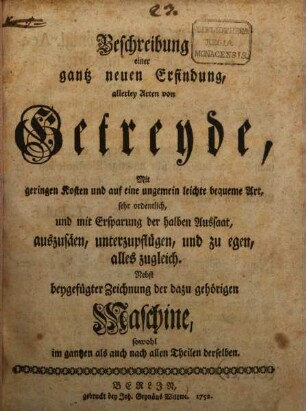 23.
BIBLIOTHECA
REGIA
MONACENSIS.
Beschreibung
einer
gantz neuen Erfindung,
allerley Arten von
Getreyde,
Mit
geringen Kosten und auf eine ungemein leichte bequeme Art,
sehr ordentlich,
und mit Ersparung der halben Aussaat,
auszusäen, unterzupflügen, und zu egen,
alles zugleich.
Nebst
beygefügter Zeichnung der dazu gehörigen
Maschine,
sowohl
im gantzen als auch nach allen Theilen derselben.
BERLIN,
gedruckt bey Joh. Grynäus Wittwe. 1752.